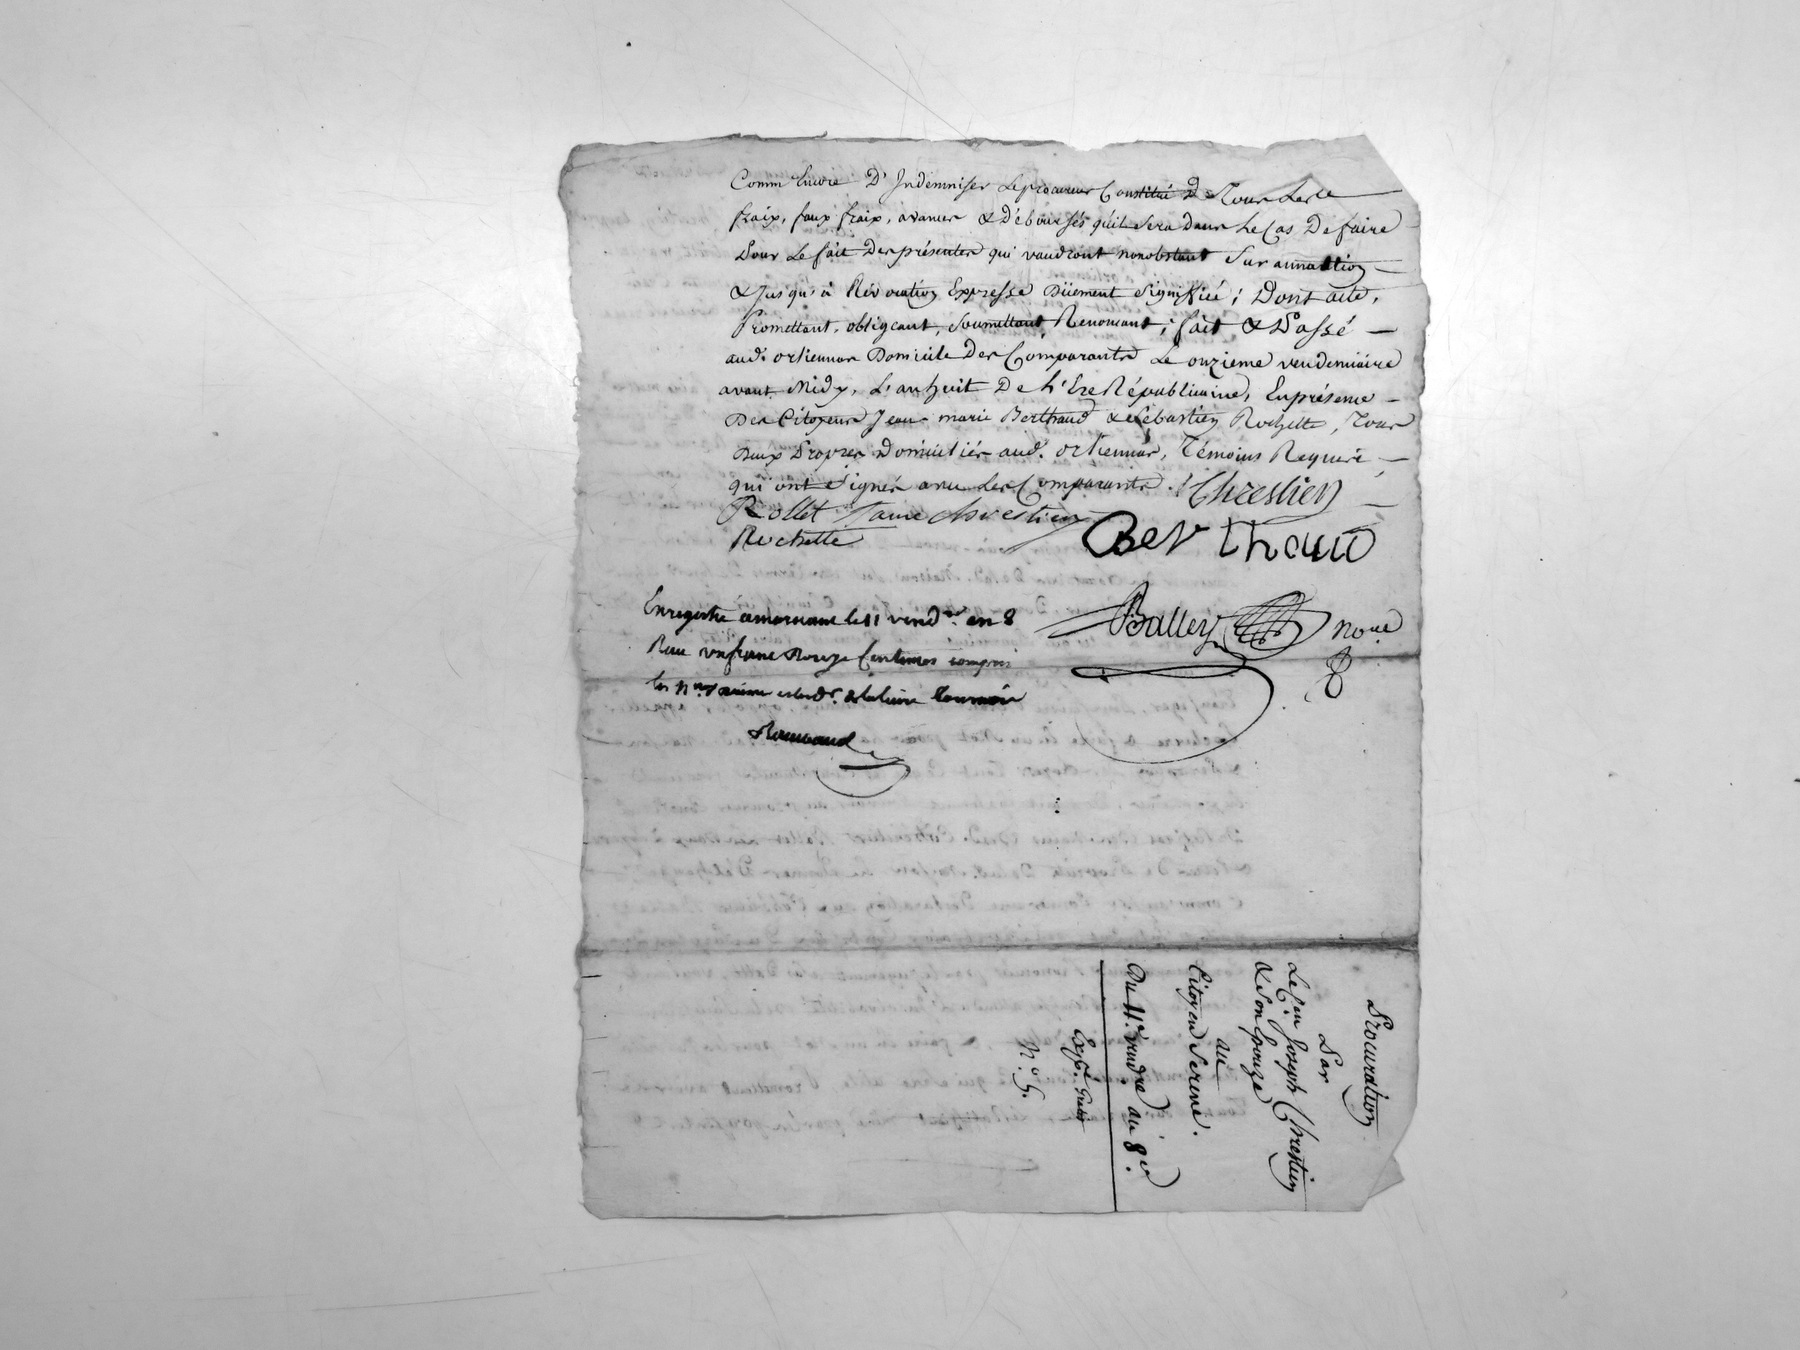 Comm' Encore D'Indemniser Le procureur Constitué De Tour Les
fraix, faux fraix, avances & Déboursés qu'il sera Dans Le Cas De faire
Pour Le fait Des présentes qui vaudront nonobstant Surannation
& Jusqu'à Révocation Expresse Düement signifiée; Dont acte,
Promettant, obligeant, soumettant, Renoncant; fait & Passé
aud. orliennas Domicile Des Comparants Le onzieme vendemiaire
avant Midy, L'an huit De L'Ere Républicaine, En présence
Des Citoyens Jean marie Berthaud & Sébastien Rochette, Tous
Deux Propres Domiciliés aud. orliennas, Témoins Requis
qui ont signés avec Les Comparants. Chrestien
Rollet Fame chrestien
Rochette
Berthaud
Enregistré a mornant le 11 vend.re an 8
Reçu un franc Centimes compris
Balley no.re
Procuration
Par
Le C.en Joseph Chrestien
& Son Epouze
au
Citoyen Serene.
Du 11.e vendre an 8.e
Exp.é
N.o 5.